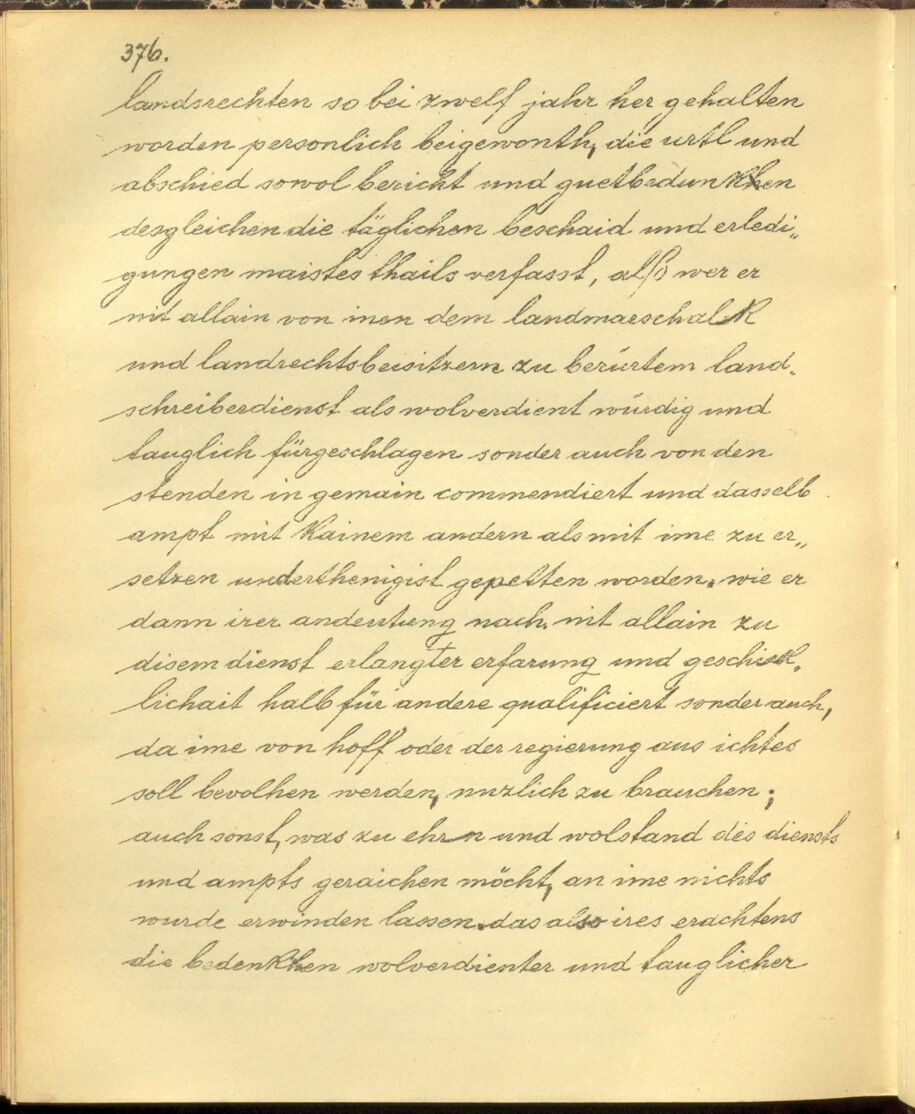 376.
landsrechten so bei zwelf jahr her gehalten
worden personlich beigewonth, die urtl und
abschied sowol bericht und guetbedunkhen
desgleichen die täglichen beschaid und erledi„
gungen maistes thails verfasst, alß wer er
nit allain von inen dem landmarschalk
und landrechtsbeisitzern zu berürtem land„
schreiberdienst als wolverdient würdig und
tauglich fürgeschlagen sonder auch von den
stenden in gemain commendiert und dasselb
ampt mit kainem andern als mit ime zu er„
setzen underthenigist gepetten worden. wie er
dann irer andeutung nach, nit allain zu
disem dienst erlangter erfarung und geschick„
lichait halb für andere qualificiert sonder auch,
da ime von hoff oder der regierung aus ichtes
soll bevolhen werden, nuzlich zu brauchen ;
auch sonst, was zu ehrn und wolstand des diensts
und ampts geraichen möcht, an ime nichts
wurde erwinden lassen. das also ires erachtens
die bedenkhen wolverdienter und tauglicher